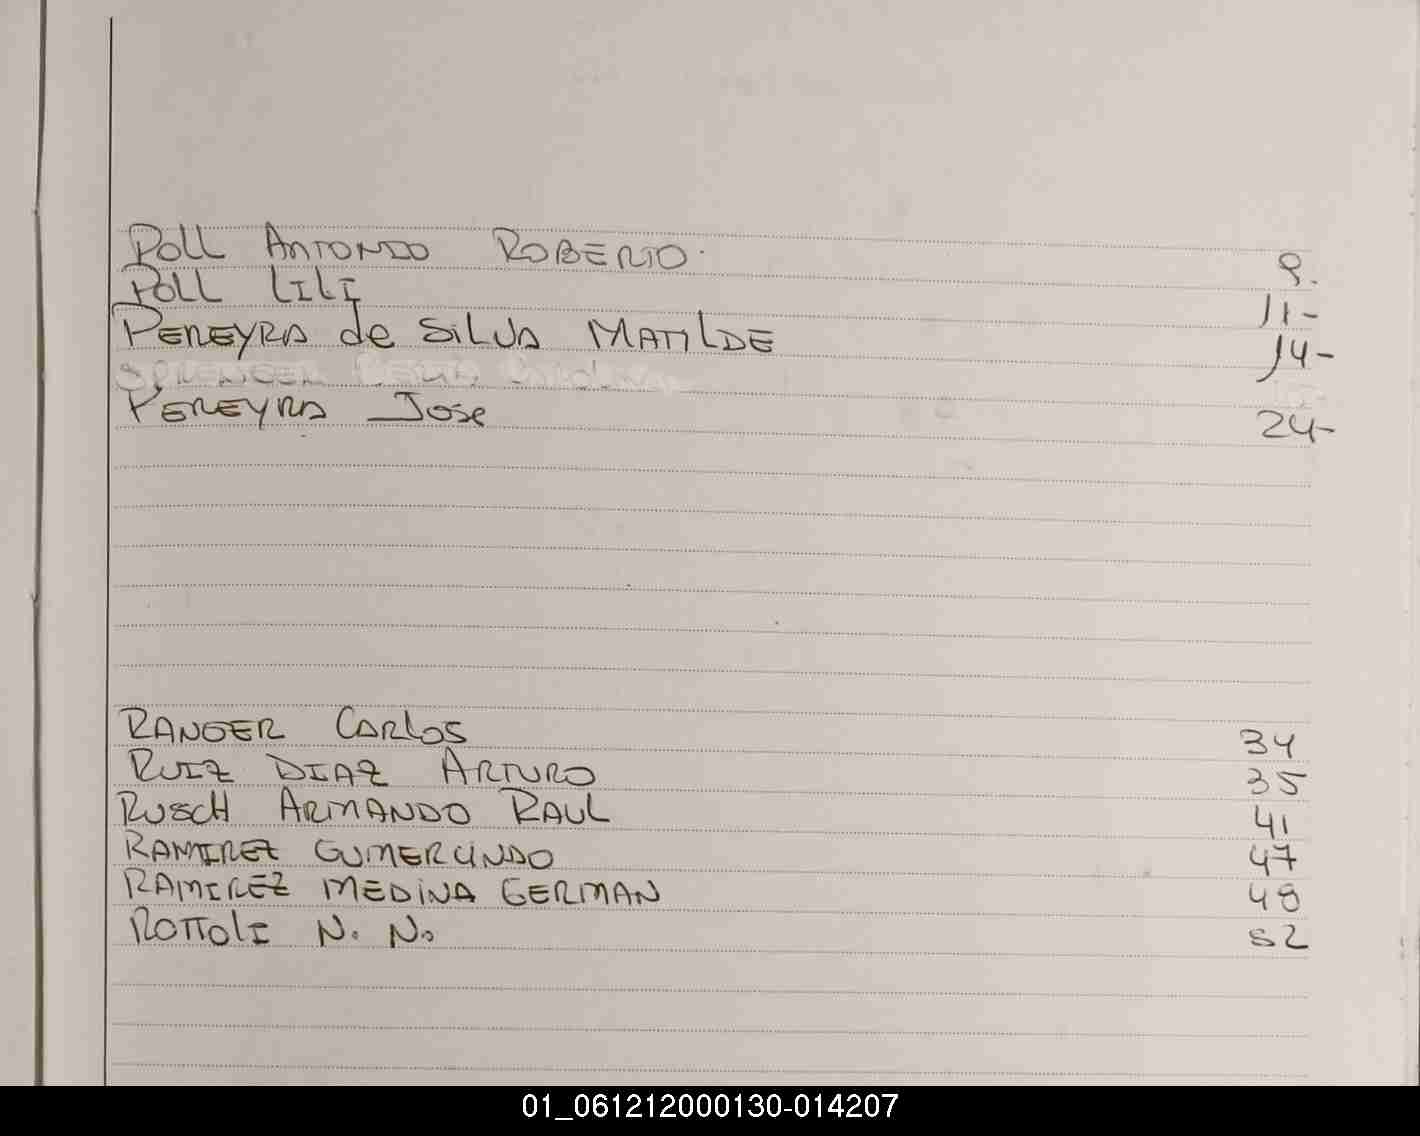 Poll Antonio Roberto. 9.
Poll Lili 11-
Pereyra de Silva Matilde 14-
Pereyra Jose 24-
Ranger Carlos 34
Ruiz Diaz Arturo 35
Rusch Armando Raul 41
Ramirez Gumercindo 47
Ramirez Medina German 48
Rottoli N. N. 52
01_061212000130-014207